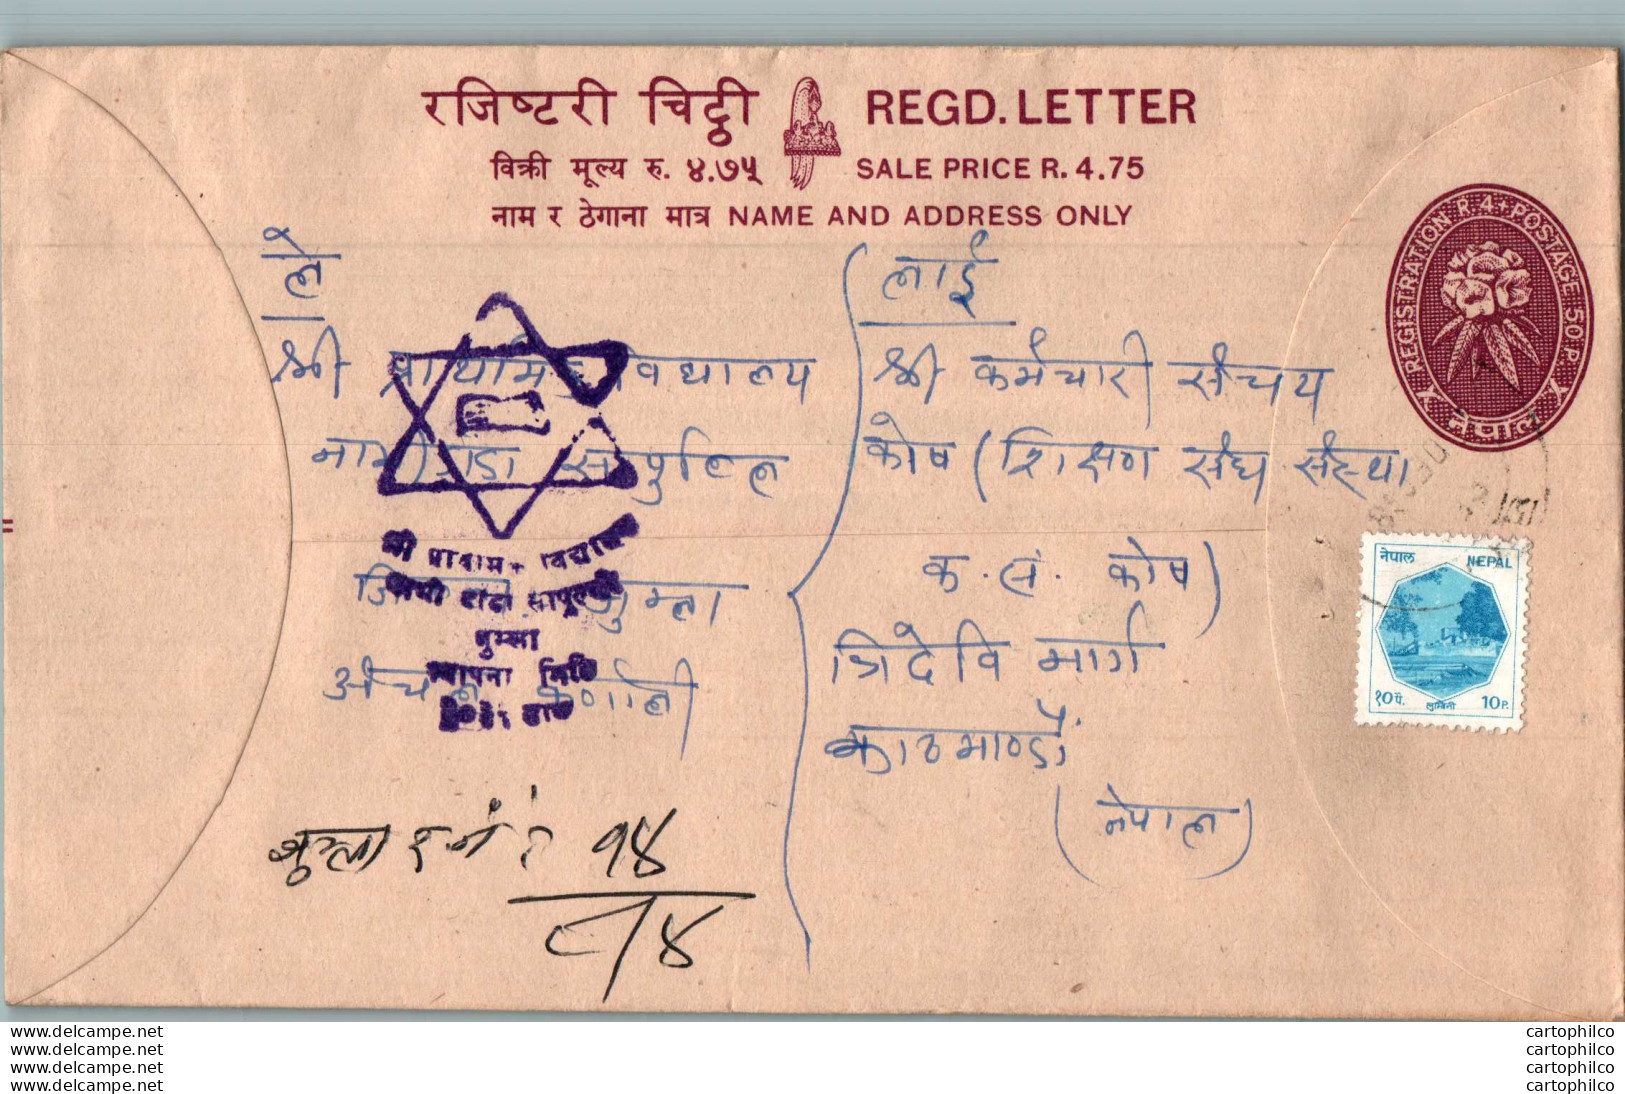 रजिष्टरी चिट्ठी REGD. LETTER
विक्री मूल्य रु. ४.७५ SALE PRICE R. 4.75
नाम र ठेगाना मात्र NAME AND ADDRESS ONLY
REGISTRATION R. 4 + POSTAGE 50 P.
नेपाल
ले
श्री प्राथमिक विद्यालय
जुम्ला
अंचल कर्णाली
लाई
श्री कर्मचारी संचय
कोष (शिक्षण संघ संस्था
क. सं. कोष)
त्रिदेवि मार्ग
काठमाण्डौं
(नेपाल)
जुम्ला
स्थापना मिति
नेपाल NEPAL
१० पै. लुम्बिनी 10 P.
जुम्ला र नं १४
www.delcampe.net
www.delcampe.net
www.delcampe.net
www.delcampe.net
cartophilco
cartophilco
cartophilco
cartophilco